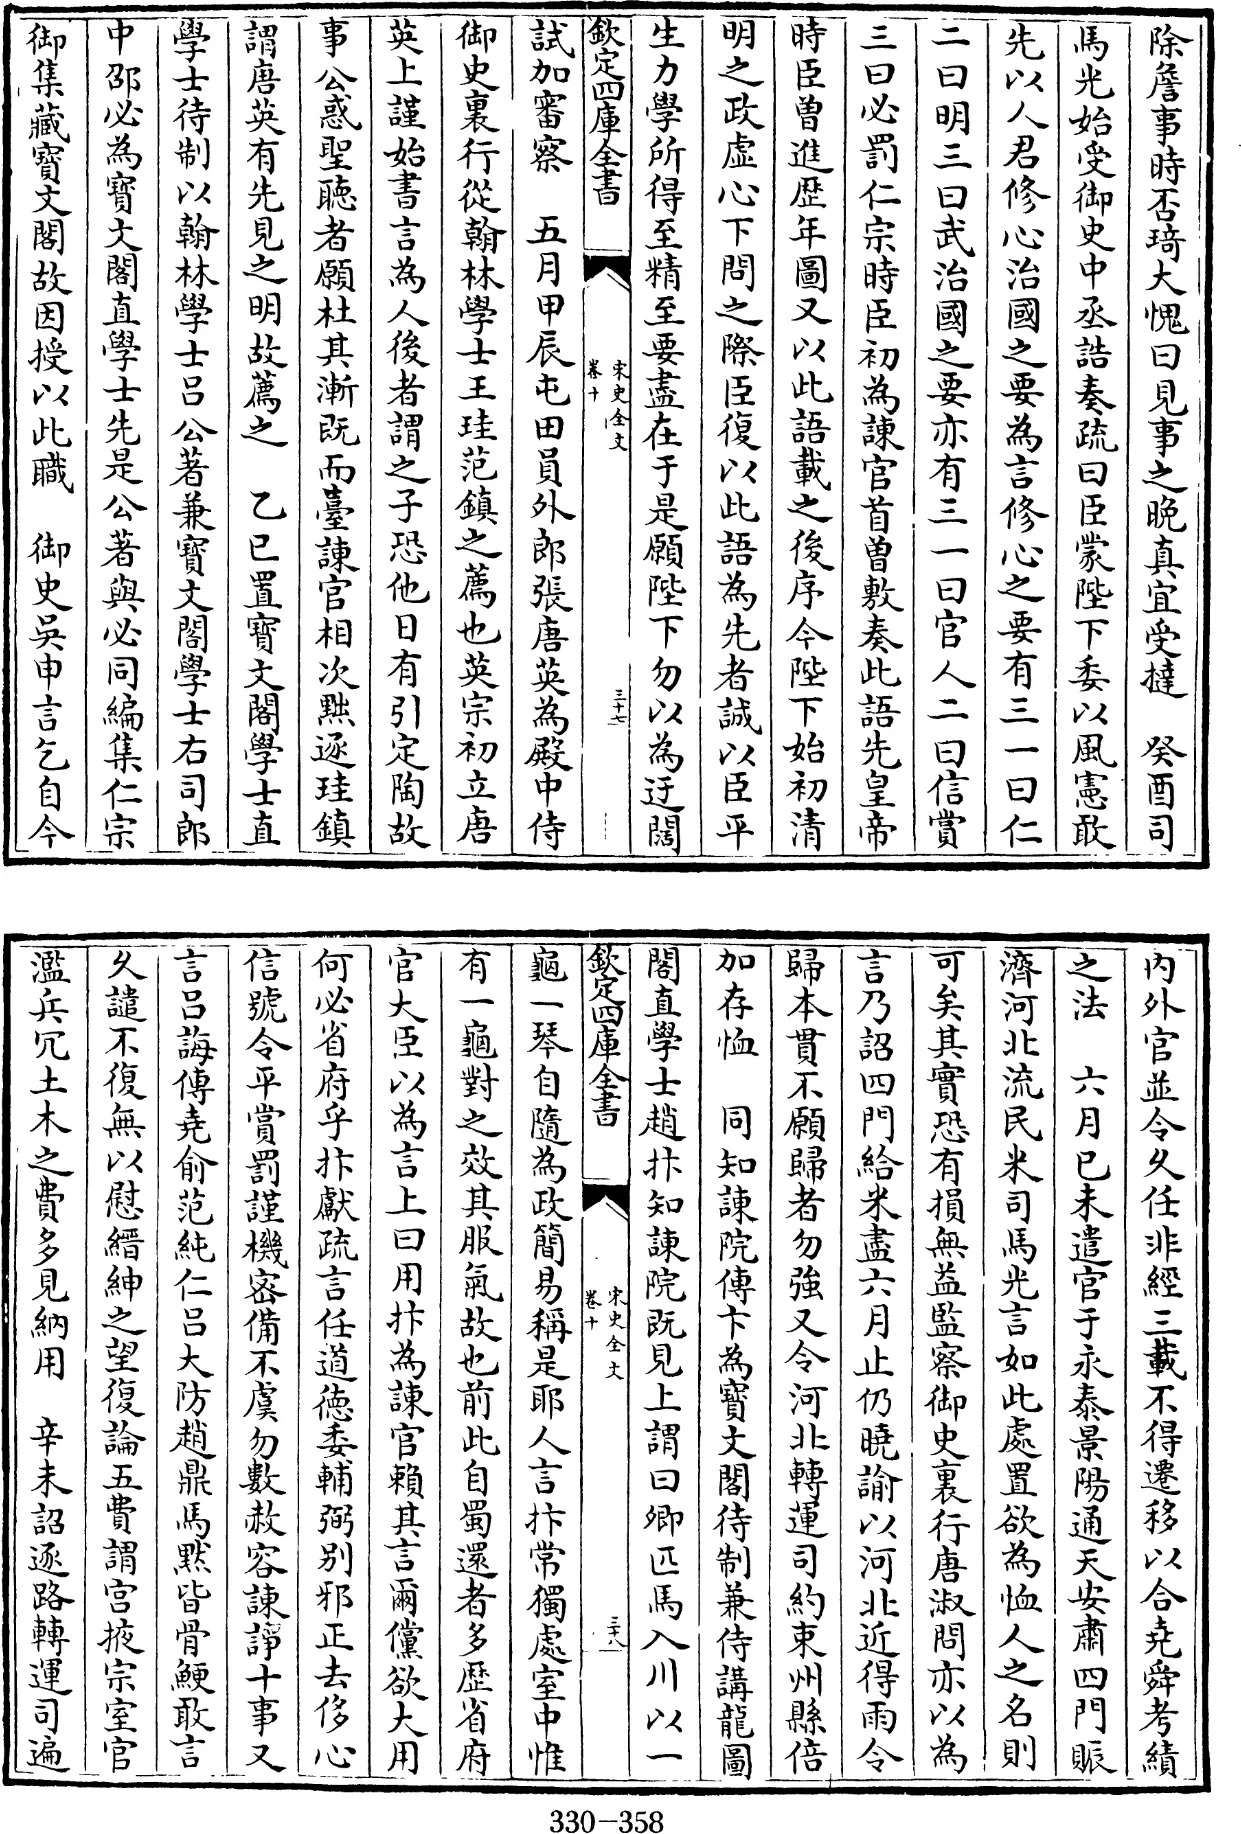 除詹事時否琦大愧曰見事之晩真宜受撻　癸酉司
馬光始受御史中丞誥奏疏曰臣蒙陛下委以風憲敢
先以人君修心治國之要為言修心之要有三一曰仁
二曰明三曰武治國之要亦有三一曰官人二曰信賞
三曰必罰仁宗時臣初為諫官首曽敷奏此語先皇帝
時臣曽進歴年圖又以此語載之後序今陛下始初清
明之政虛心下問之際臣復以此語為先者誠以臣平
生力學所得至精至要盡在于是願陛下勿以為迂闊
欽定四庫全書
宋史全文
卷十
三十七
試加審察　五月甲辰屯田員外郎張唐英為殿中侍
御史裏行從翰林學士王珪范鎮之薦也英宗初立唐
英上謹始書言為人後者謂之子恐他日有引定陶故
事公惑聖聽者願杜其漸既而臺諫官相次黜逐珪鎮
謂唐英有先見之明故薦之　乙已置寳文閣學士直
學士待制以翰林學士吕公著兼寳文閣學士右司郎
中邵必為寳文閣直學士先是公著與必同編集仁宗
御集藏寳文閣故因授以此職　御史吳申言乞自今
內外官並令乆任非經三載不得遷移以合堯舜考績
之法　六月已未遣官于永泰景陽通天安肅四門賑
濟河北流民米司馬光言如此處置欲為恤人之名則
可矣其實恐有損無益監察御史裏行唐淑問亦以為
言乃詔四門給米盡六月止仍曉諭以河北近得雨令
歸本貫不願歸者勿強又令河北轉運司約束州縣倍
加存恤　同知諫院傅卞為寳文閣待制兼侍講龍圖
閣直學士趙抃知諫院既見上謂曰卿匹馬入川以一
欽定四庫全書
宋史全文
卷十
三十八
龜一琴自隨為政簡易稱是耶人言抃常獨處室中惟
有一龜對之效其服氣故也前此自蜀還者多歴省府
官大臣以為言上曰用抃為諫官賴其言爾儻欲大用
何必省府乎抃獻疏言任道德委輔弼别邪正去侈心
信號令平賞罰謹機密備不虞勿數赦容諫諍十事又
言吕誨傅堯俞范純仁吕大防趙鼎馬黙皆骨鯁敢言
乆譴不復無以慰縉紳之望復論五費謂宫掖宗室官
濫兵冗土木之費多見納用　辛未詔逐路轉運司遍
330-358